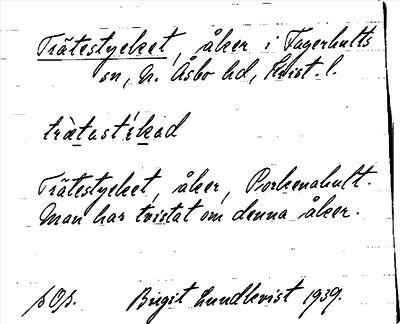 Trätestycket, åker i Fagerhults
sn, N. Åsbo hd, Krist. l.
trætastikad
Trätestycket, åker, Porkenahult.
Man har tvistat om denna åker.
sOp. Birgit Lundkvist 1939.